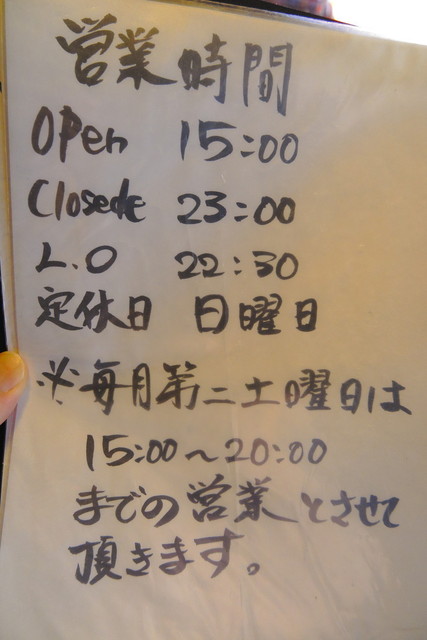 営業時間
OPen 15:00
Closede 23:00
L.O 22:30
定休日 日曜日
※毎月第二土曜日は
15:00～20:00
までの営業とさせて
頂きます。